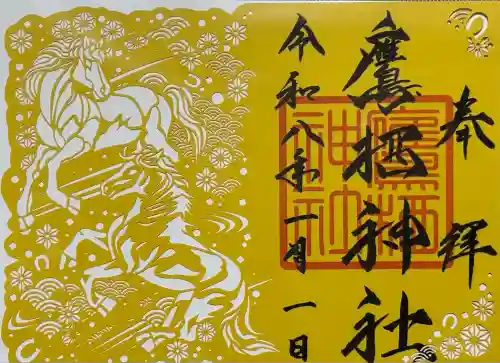 奉拝
鷹栖神社
令和八年一月一日
鷹栖神社